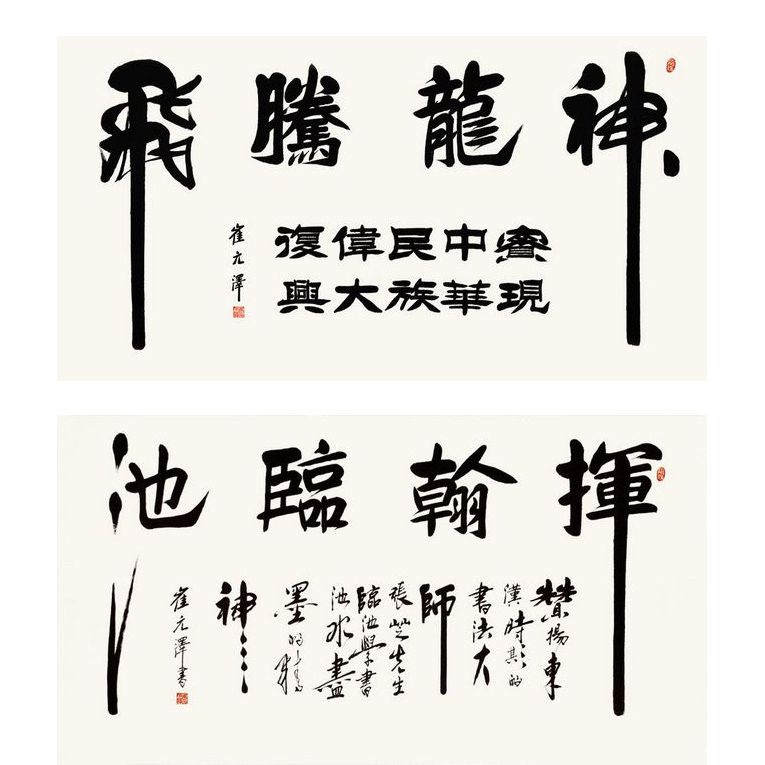 神龍騰飛
實現
中華
民族
偉大
復興
崔元澤
揮翰臨池
贊揚東
漢時期的
書法大
師
張芝先生
臨池學書
池水盡
墨的精
神
崔元澤書